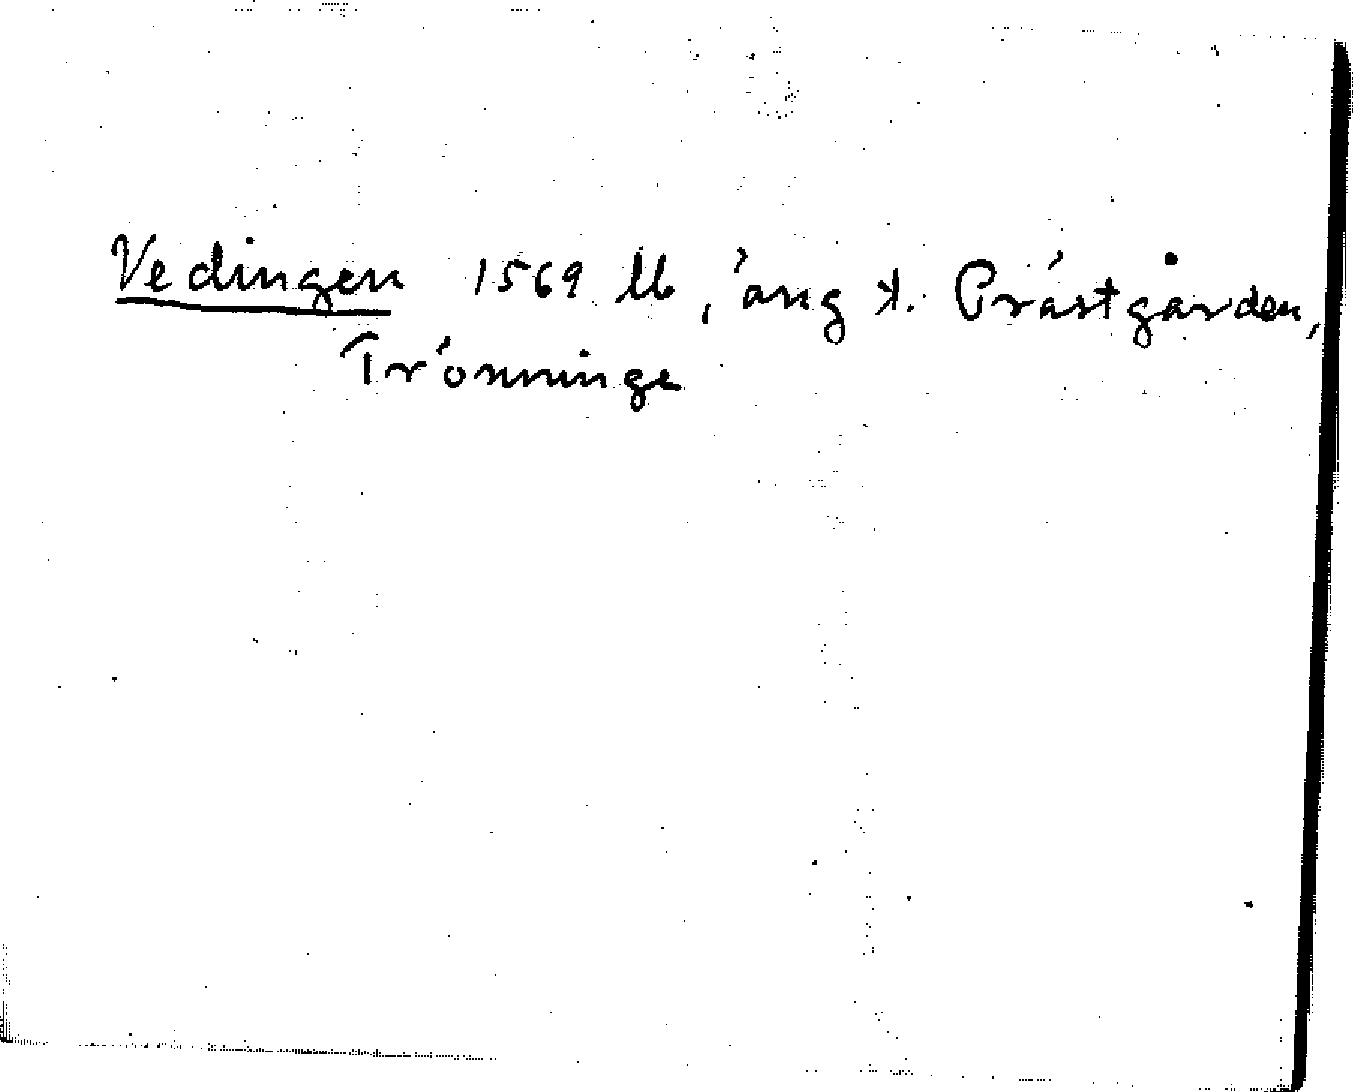 Vedingen 1569 lb, äng t. Prästgården,
Trönninge